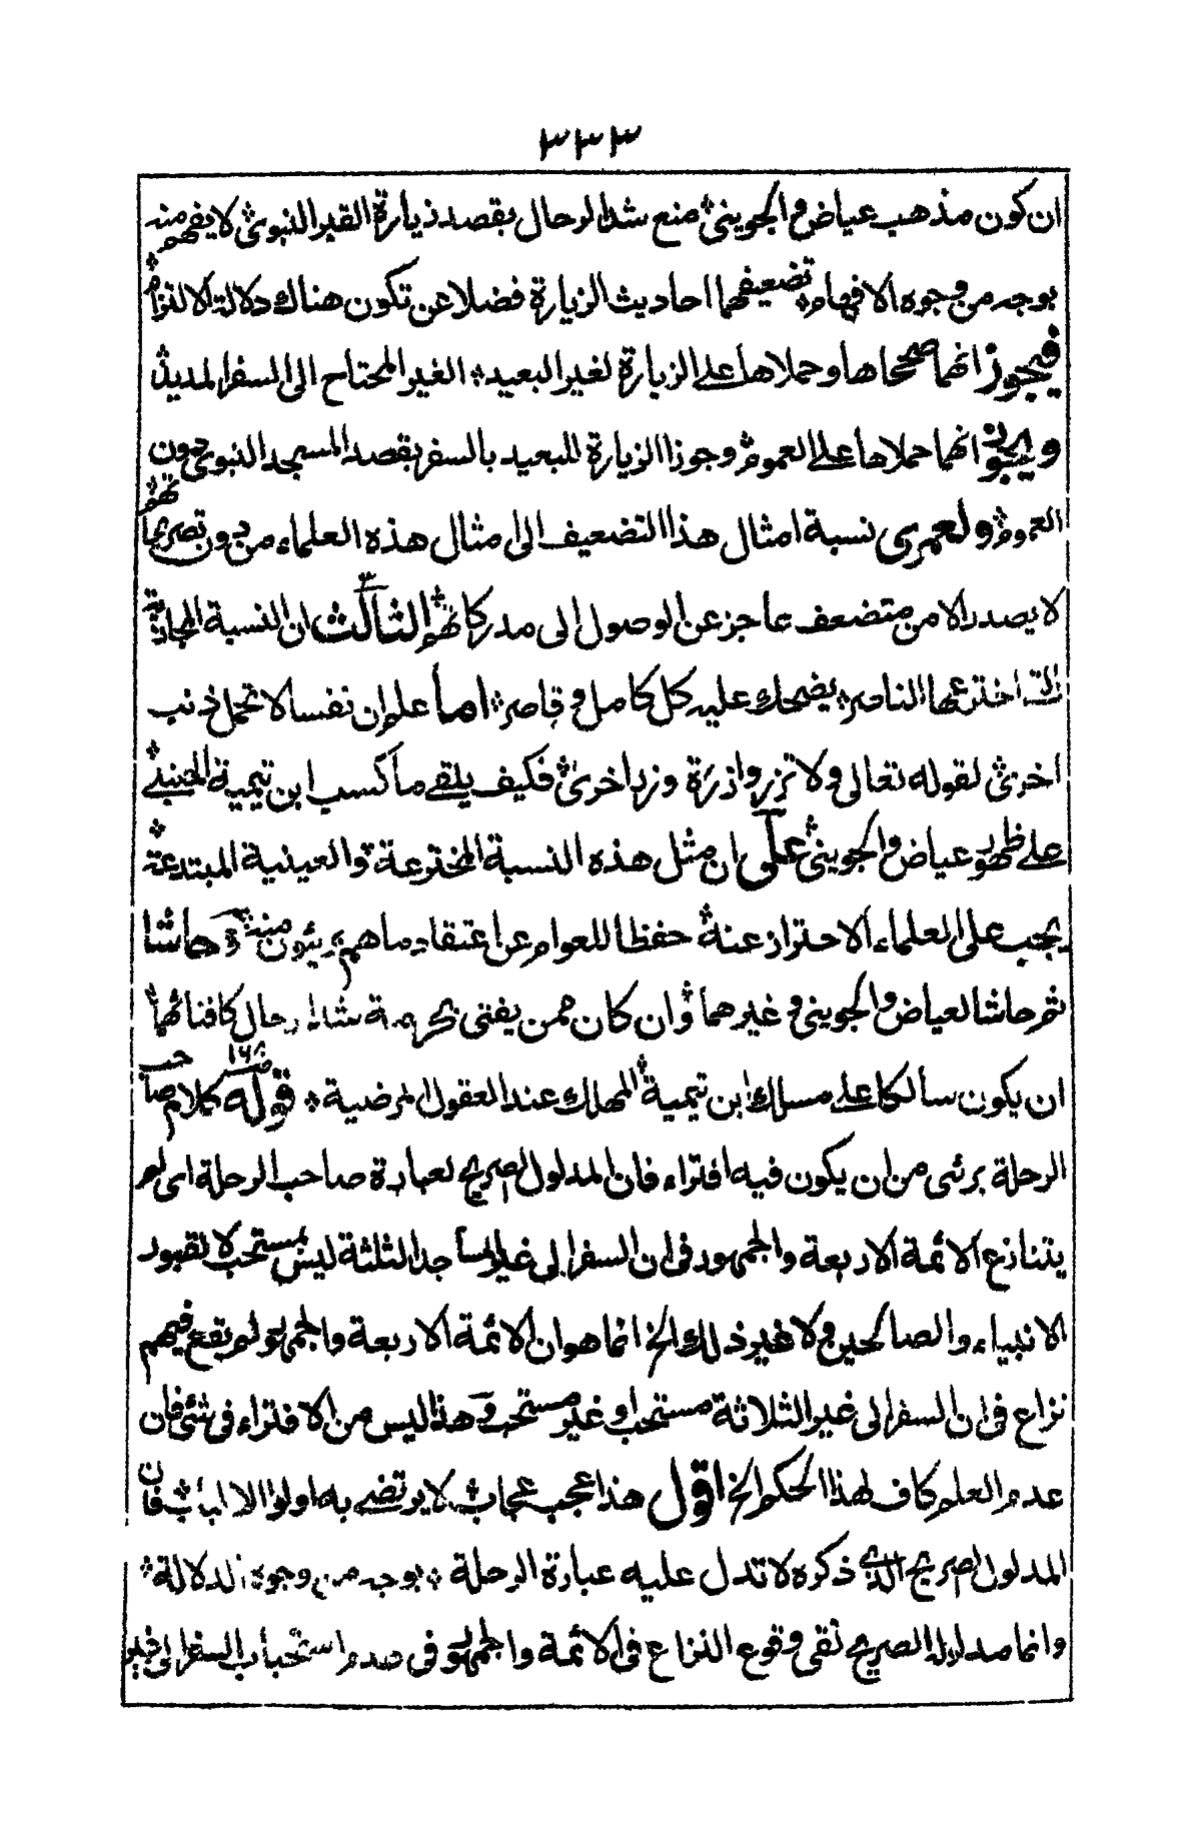 ٣٣٣
ان كون مذهب عياض والجوينى منع شد الرحال بقصد زيارة القبر النبوى لا يفهم منه
بوجه من وجوه الافهام تضعيفهما احاديث الزيارة فضلا عن تكون هناك دلالة الالتزام
فيجوز انهما صححاها وحملاها على الزيارة لغير البعيد الغير المحتاج الى السفر المديد
ويجوز انهما حملاها على العموم وجوزا الزيارة للبعيد بالسفر بقصد المسجد النبوى دون
العموم ولعمرى نسبة امثال هذا التضعيف الى امثال هذه العلماء من دون تصريحاتهم
لا يصدر الا من متضعف عاجز عن الوصول الى مدركاتهم الثالث ان النسبة المجازية
التى اخترعها الناصر يضحك عليه كل كامل وقاصر اما علم ان نفسا لا تحمل ذنب
اخرى لقوله تعالى ولا تزر وازرة وزر اخرى فكيف يلقے ما كسب ابن تيمية الحنبلے
علے ظهور عياض والجوينى علٰى ان مثل هذه النسبة المخترعة والعينية المبتدعة
يجب على العلماء الاحتراز عنة حفظا للعوام عن اعتقاد ما هم بريئون منه وحاشا
ثم حاشا لعياض والجوينى وغيرهما وان كان ممن يفتى بحرمة شد الرحال كافتائهما
ان يكون سالكا علے مسلك ابن تيمية المهلك عند العقول المرضية قوله ص ١٦٨ كلام صاحب
الرحلة برئى من ان يكون فيه افتراء فان المدلول الصريح لعبارة صاحب الرحلة اى لم
يتنازع الائمة الاربعة والجمهور فى ان السفر الى غير المساجد الثلثة ليس بمستحب لا لقبور
الانبياء والصالحين ولا غير ذلك الخ انما هو ان الائمة الاربعة والجمهور لم يقع فيهم
نزاع فى ان السفر الى غير الثلاثة مستحب او غير مستحب وهذا ليس من الافتراء فى شئ فان
عدم العلم كاف لهذا الحكم الخ اقول هذا عجب عجاب لا يرتضے به اولوا الالباب فان
المدلول الصريح الذى ذكره لا تدل عليه عبارة الرحلة بوجه من وجوه الدلالة
وانما مدلوله الصريح نفى وقوع النزاع فى الائمة والجمهور فى عدم استحباب السفر الى غير